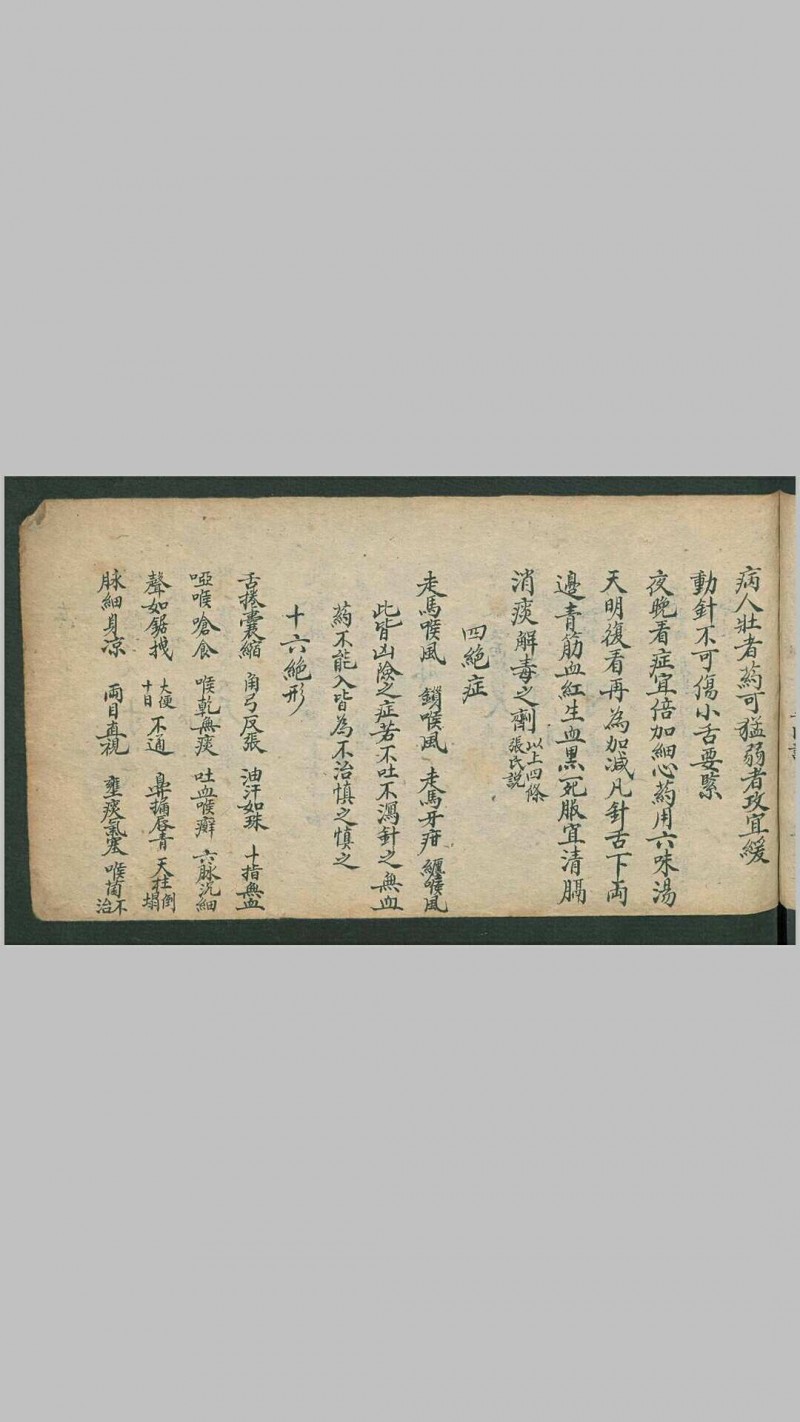 病人壯者药可猛弱者攻宜緩
動針不可傷小舌要緊
夜晚看症宜倍加細心药用六味湯
天明復看再為加減凡針舌下両
邊青筋血紅生血黒死服宜清膈
消痰解毒之劑以上四條張氏説
四絕症
走馬喉風 鎖喉風 走馬牙疳 纏喉風
此皆凶險之症若不吐不瀉針之無血
药不能入皆為不治慎之慎之
十六絕形
舌捲囊縮 角弓反張 油汗如珠 十指無血
啞喉嗆食 喉乾無痰 吐血喉癬 六脉沉細
聲如鋸拽 大便十日不通 鼻搧唇青 天柱倒塌
脉細身凉 両目直視 壅痰氣塞 喉菌不治